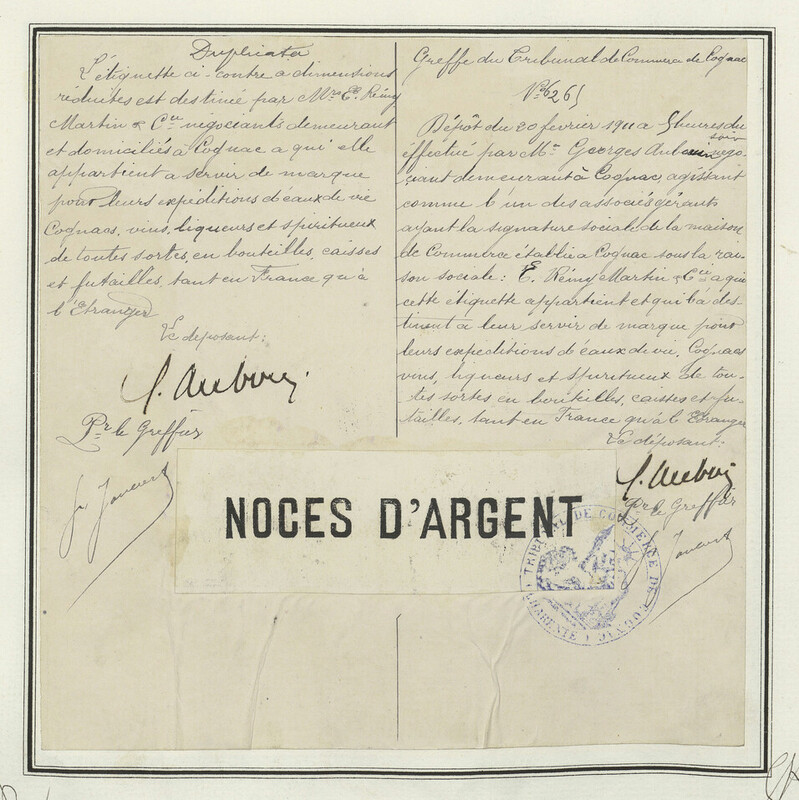 Duplicata
L'étiquette ci-contre a dimensions
réduites est destinée par Mrs E. Rémy
Martin & Cie négociants demeurant
et domiciliés à Cognac a qui elle
appartient a servir de marque
pour leurs expéditions d'eaux de vie
Cognacs, vins, liqueurs et spiritueux
de toutes sortes, en bouteilles, caisses
et futailles, tant en France qu'à
l'Etranger
Le déposant:
Pr le Greffier
Greffe du Tribunal de Commerce de Cognac
Dépôt du 20 février 1911 a 5 heures du
soir
effectué par Mr Georges Auboin négo-
ciant demeurant à Cognac, agissant
comme l'un des associés gérants
ayant la signature sociale de la maison
de Commerce établie a Cognac sous la rai-
son sociale: E. Rémy Martin & Cie a qui
cette étiquette appartient et qui la des-
tinent a leur servir de marque pour
leurs expéditions d'eaux de vie, Cognacs
vins, liqueurs et spiritueux de tou-
tes sortes en bouteilles, caisses et fu-
tailles, tant en France qu'à l'Etranger
Le déposant:
Pr le Greffier
NOCES D'ARGENT
TRIBUNAL DE COMMERCE DE COGNAC
CHARENTE